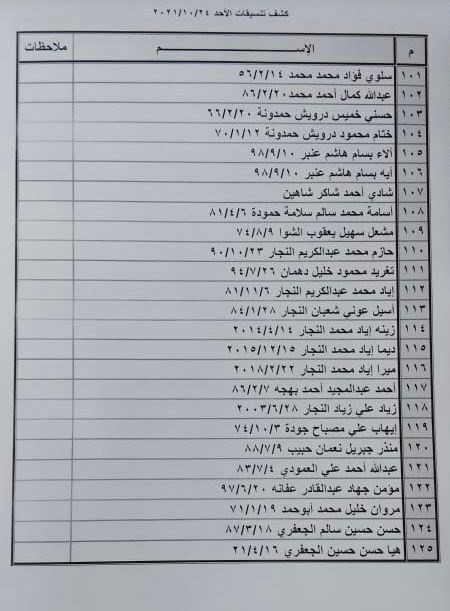 كشف تنسيقات الأحد ٢٠٢١/١٠/٢٤
م الإســـم ملاحظات
١٠١ سلوي فؤاد محمد محمد ٥٦/٢/١٤
١٠٢ عبدالله كمال أحمد محمد ٨٦/٢/٢٠
١٠٣ حسني خميس درويش حمدونة ٦٦/٢/٢٠
١٠٤ ختام محمود درويش حمدونة ٧٠/١/١٢
١٠٥ آلاء بسام هاشم عنبر ٩٨/٩/١٠
١٠٦ آيه بسام هاشم عنبر ٩٨/٩/١٠
١٠٧ شادي أحمد شاكر شاهين
١٠٨ أسامة محمد سالم سلامة حمودة ٨١/٤/٦
١٠٩ مشعل سهيل يعقوب الشوا ٧٤/٨/٩
١١٠ حازم محمد عبدالكريم النجار ٩٠/١٠/٢٣
١١١ تغريد محمود خليل دهمان ٩٤/٧/٢٦
١١٢ إياد محمد عبدالكريم النجار ٨١/١١/٦
١١٣ أسيل عوني شعبان النجار ٨٤/١/٢٨
١١٤ زينه إياد محمد النجار ٢٠١٤/٤/١٤
١١٥ ديما إياد محمد النجار ٢٠١٥/١٢/١٥
١١٦ ميرا إياد محمد النجار ٢٠١٨/٢/٢٢
١١٧ أحمد عبدالمجيد أحمد بهجه ٨٦/٢/٧
١١٨ زياد علي زياد النجار ٢٠٠٣/٦/٢٨
١١٩ إيهاب علي مصباح جودة ٧٤/١٠/٣
١٢٠ منذر جبريل نعمان حبيب ٨٨/٧/٩
١٢١ عبدالله أحمد علي العمودي ٨٣/٧/٤
١٢٢ مؤمن جهاد عبدالقادر عفانه ٩٧/٦/٢٠
١٢٣ مروان خليل محمد أبوحمد ٧١/١/١٩
١٢٤ حسن حسين سالم الجعفري ٨٧/٣/١٨
١٢٥ هيا حسن حسين الجعفري ٢١/٤/١٦